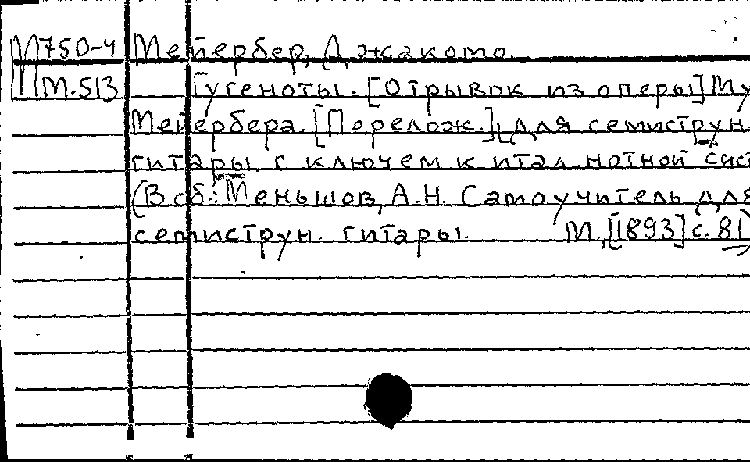 М750-4 Мейербер, Джакомо.
М.513 Гугеноты. [Отрывок из оперы] Му
Мейербера. [Перелож.], для семиструн.
гитары с ключем к итал нотной сист
(В сб: Меньшов, А.Н. Самоучитель для
семиструн. гитары. М., [1893] с. 81)